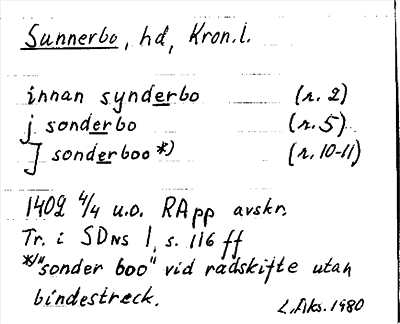 Sunnerbo, hd, Kron.l.
innan synderbo (r. 2)
j sonderbo (r. 5)
J sonderboo *) (r. 10-11)
1402 4/4 u.o. RApp avskr.
Tr. i SDNS 1, s. 116 ff
*) "sonder boo" vid radskifte utan
bindestreck.
L.Fks. 1980